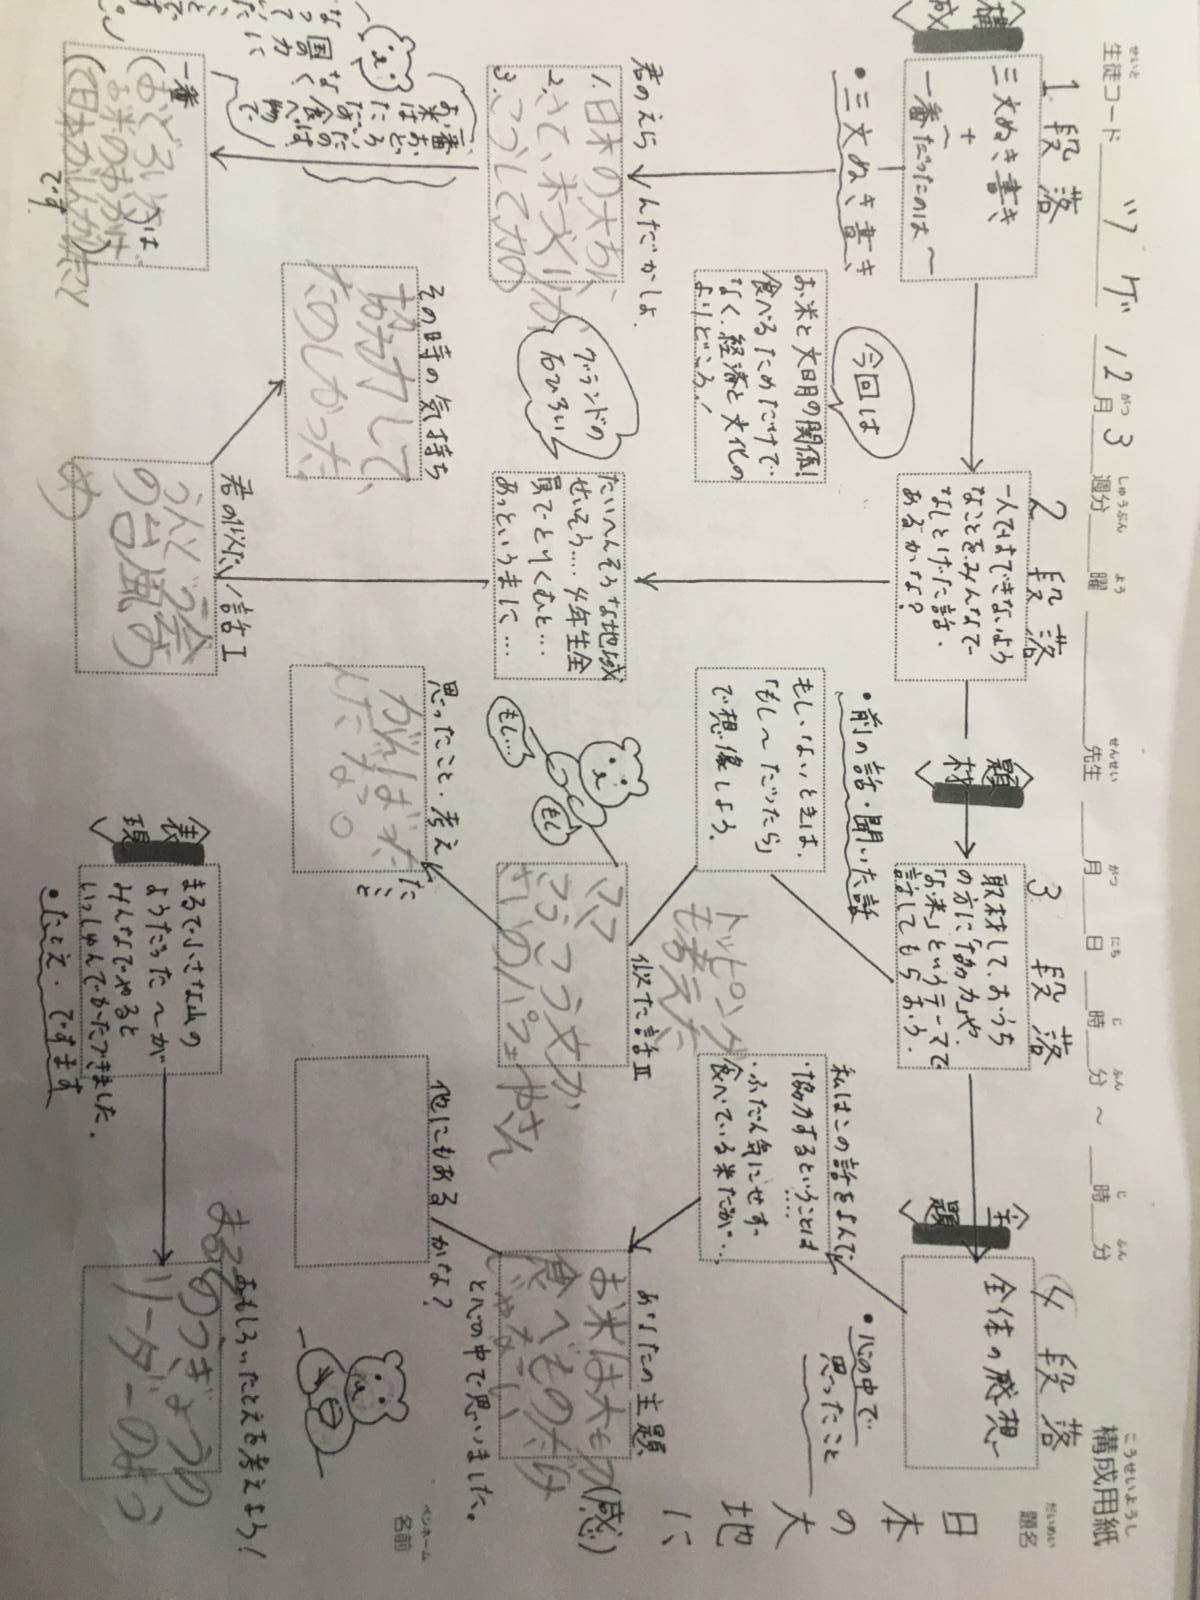 構成用紙
題名
日本の大地に
生徒コード ツゲ 12月3週分 曜 先生 月 日 時 分 ～ 時 分
ペンネーム
名前
構成
1段落
三文ぬき書き
＋
一番だったのは～
・三文ぬき書き
君のえらんだかしょ。
1.日本の大ち
2.さて、米づくりが
3.こうして力
一番おどろいたのは、
お米のおかげで
です
2段落
一人ではできないよう
なことをみんなで
なしとげた話。
あるかな？
今回は
お米と文明の関係!
食べるためだけで
なく、経済と文化の
よりどころ!
たいへんそうな地域
せいそう…。4年生全
員でとりくむと…
あっというまに…
グランドの
石ひろい
君の似た話Ⅰ
うんどう会
の台風
その時の気持ち
協力して、
たのしかった
題材
3段落
取材して、おうち
の方に「協力」や、
「お米」というテーマで
話してもらおう。
・前の話・聞いた話
もしいないときは、
「もし～だったら」
で想像しよう。
もし…
もし
似た話Ⅱ
ママ
トッピング
も考えた
思ったこと・考えたこと
がんばった
んだなっ。
主題
4段落
全体の感想
・心の中で
思ったこと
私はこの話をよんで
・協力するということは
……
・ふだん気にせず
食べている米だが…、
あなたの主題(感)
お米は大も
食べものだけ
じゃない
と心の中で思いました。
他にもあるかな？
表現
まるで小さな山の
ようだった～が
みんなでやると
いっしゅんでかたづきました。
・たとえ・ですます
おもしろいたとえを考えよう!
まるで
リーダーのよう